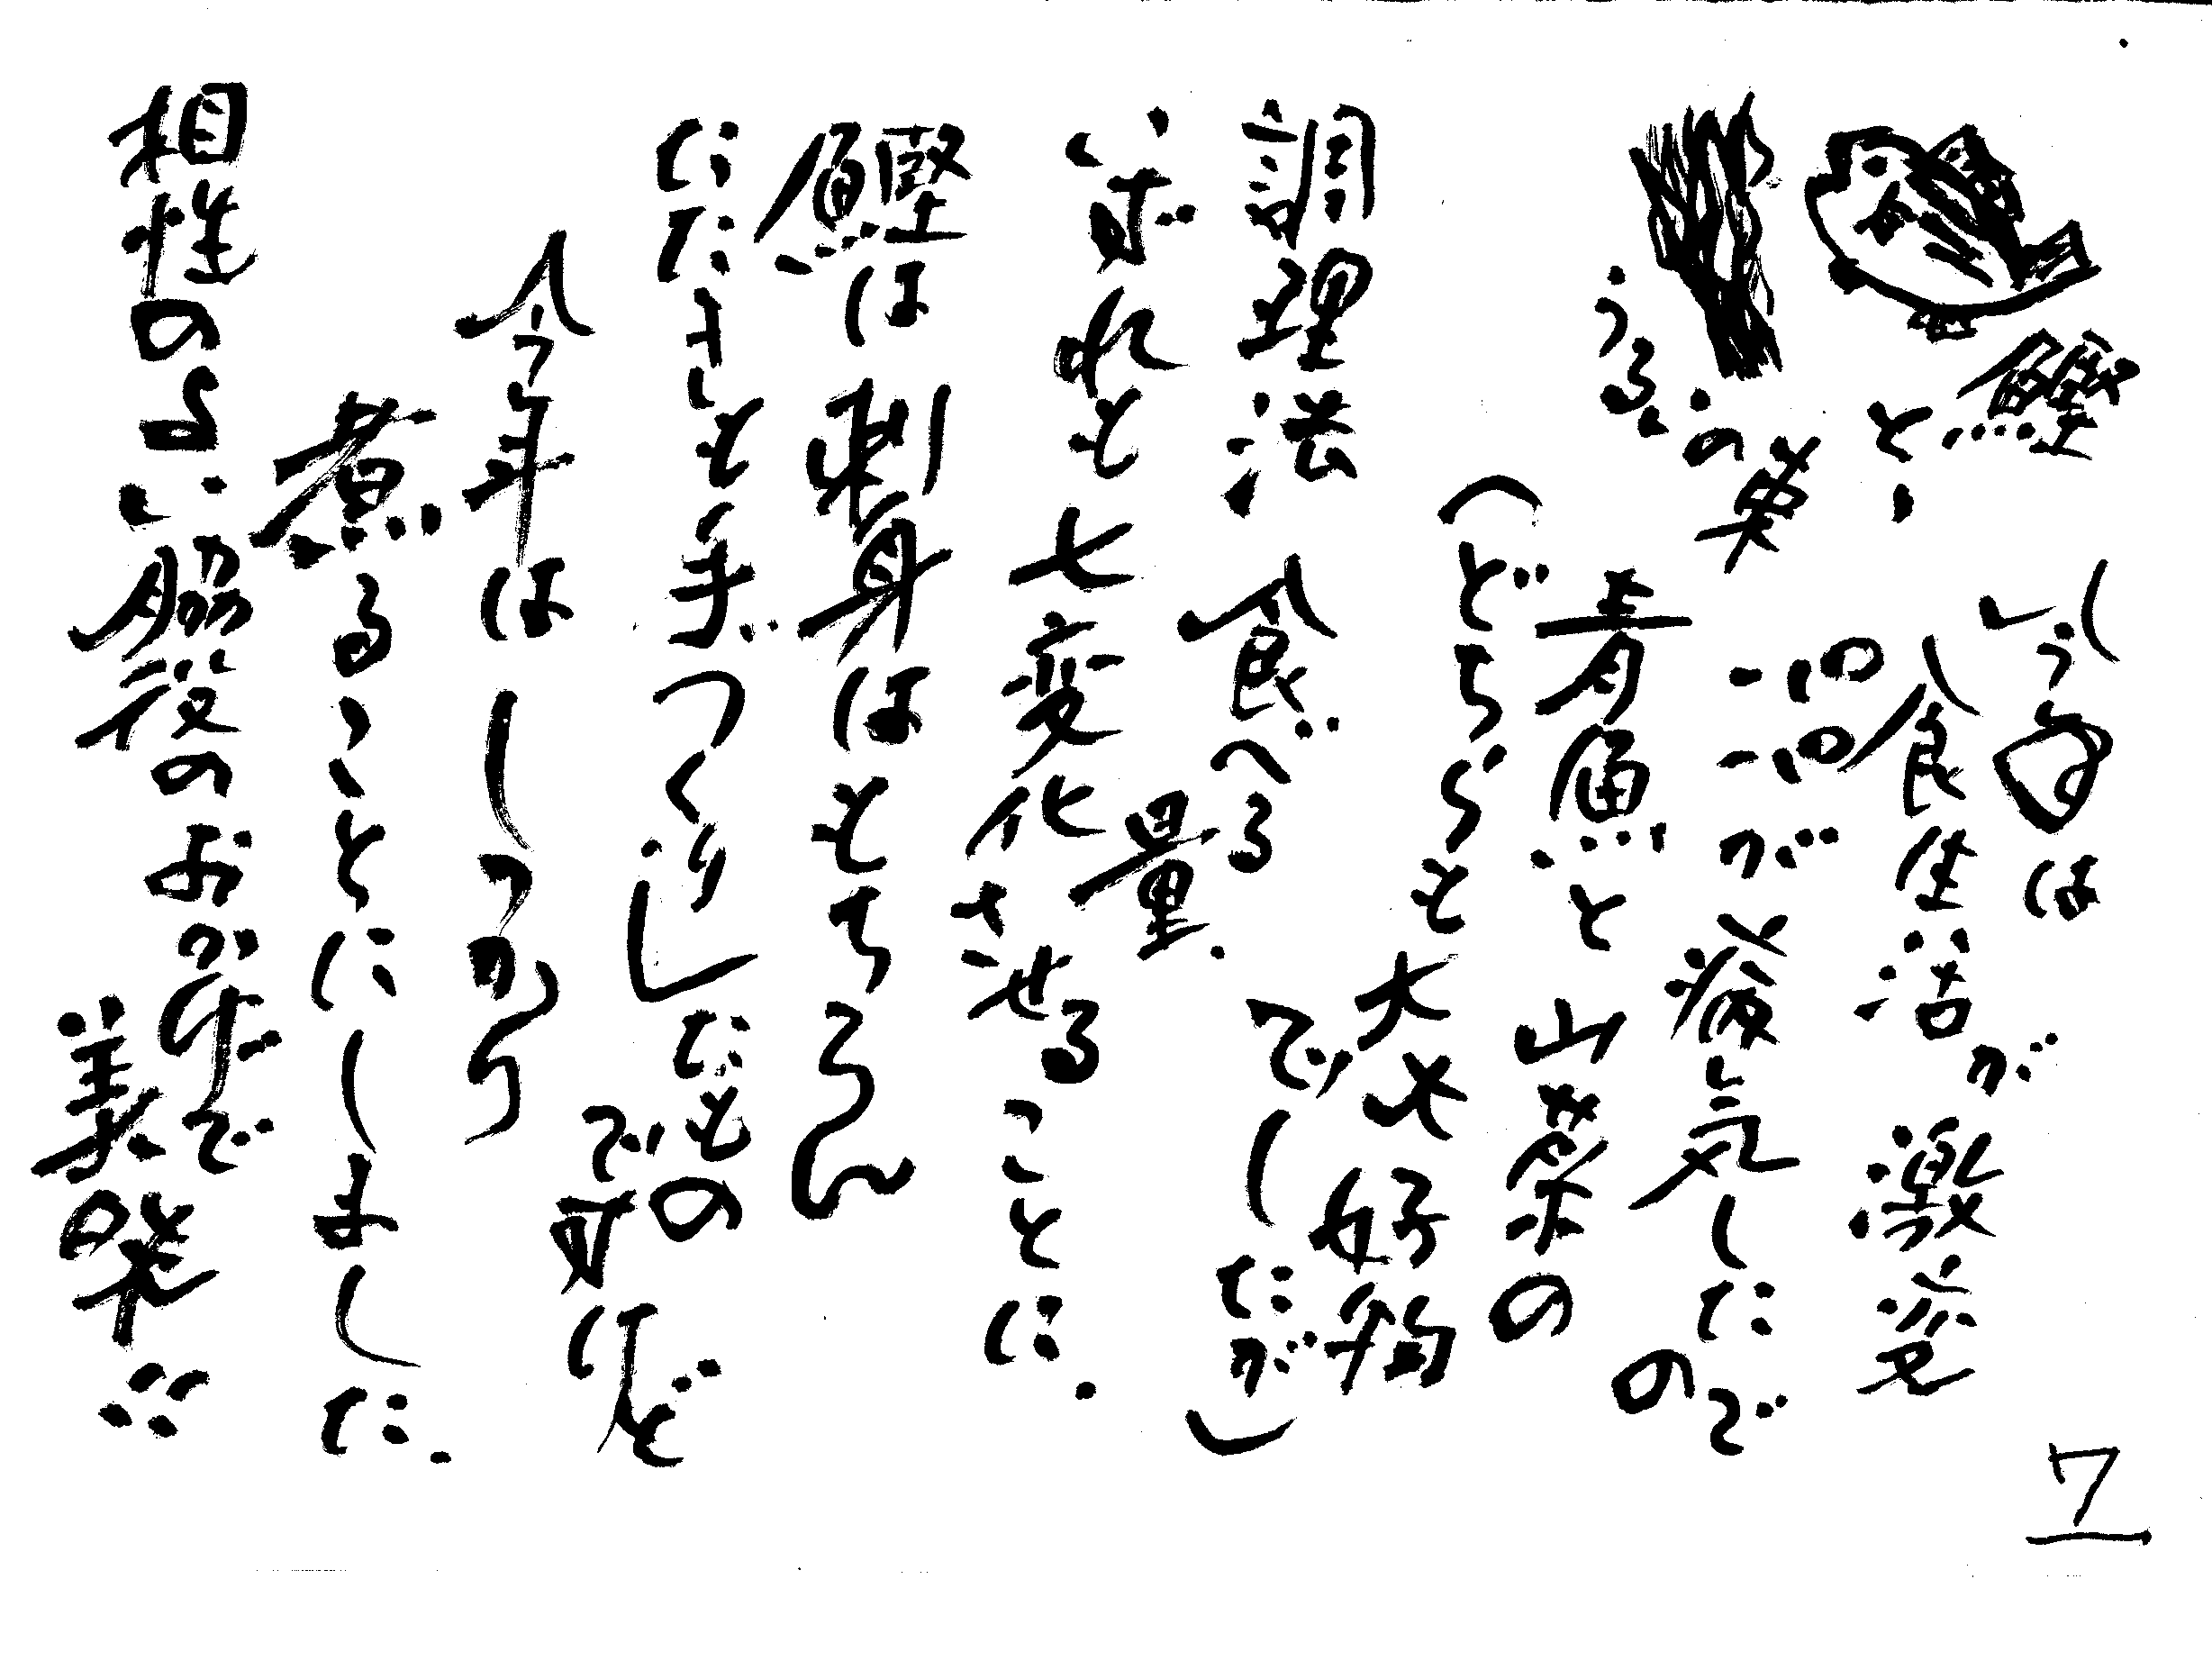 7
鰹
と、
うるいの
は
食生活が激変
パパが病気したので
青魚と山菜の
(どちらも大大好物
でしたが)
調理法、食べる量.
いずれも七変化させることに.
鰹は刺身はもちろん
たたきも手づくりしたもの
ですけど
今年はしっかり
煮ることにしました.
相性のよい脇役のおかげで